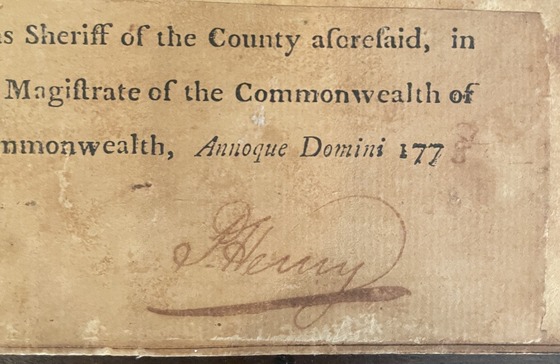 as Sheriff of the County aforeſaid, in
Magiſtrate of the Commonwealth of
mmonwealth, Annoque Domini 177
P. Henry